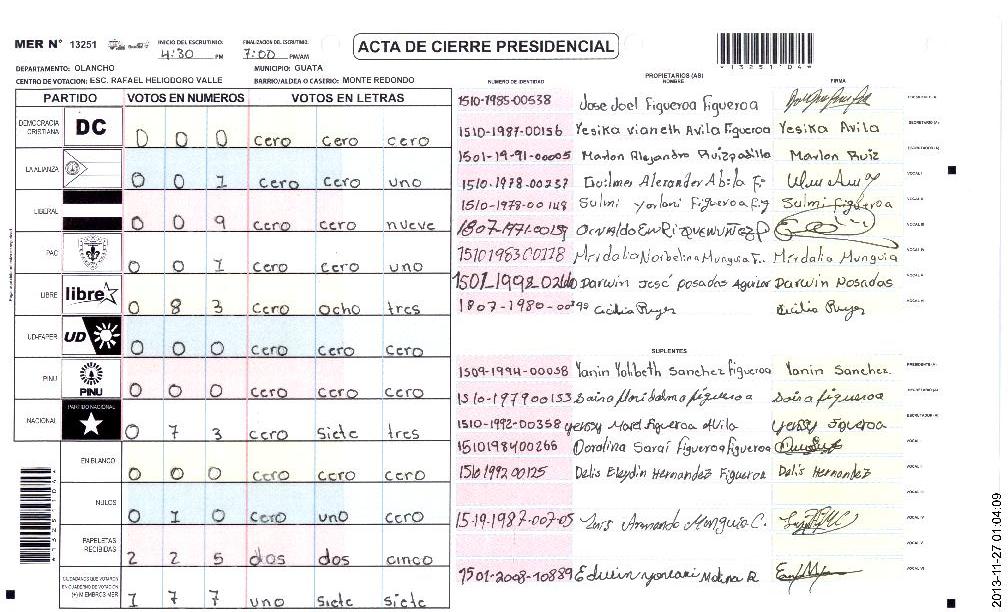 MER N° 13251
INICIO DEL ESCRUTINIO:
4:30 PM
FINALIZACION DEL ESCRUTINIO:
7:00 PM/AM
ACTA DE CIERRE PRESIDENCIAL
DEPARTAMENTO: OLANCHO
MUNICIPIO: GUATA
CENTRO DE VOTACION: ESC. RAFAEL HELIODORO VALLE
BARRIO/ALDEA O CASERIO: MONTE REDONDO
PARTIDO VOTOS EN NUMEROS VOTOS EN LETRAS
DEMOCRACIA CRISTIANA DC 0 0 0 cero cero cero
LA ALIANZA 0 0 1 cero cero uno
LIBERAL 0 0 9 cero cero nueve
PAC 0 0 1 cero cero uno
LIBRE libre 0 8 3 cero ocho tres
UD-FAPER UD 0 0 0 cero cero cero
PINU PINU 0 0 0 cero cero cero
NACIONAL PARTIDO NACIONAL 0 7 3 cero siete tres
EN BLANCO 0 0 0 cero cero cero
NULOS 0 1 0 cero uno cero
PAPELETAS RECIBIDAS 2 2 5 dos dos cinco
CIUDADANOS QUE VOTARON EN CUADERNO DE VOTACION (+) MIEMBROS MER 1 7 7 uno siete siete
*13251104*
NUMERO DE IDENTIDAD PROPIETARIOS (AS) NOMBRE FIRMA
1510-1985-00538 Jose Joel Figueroa Figueroa
1510-1987-00156 Yesika vianeth Avila Figueroa Yesika Avila SECRETARIO (A)
1501-19-91-00005 Marlon Alejandro Ruizpadilla Marlon Ruiz
1510-1978-00237 Guilmer Alexander Abila F. VOCAL I
1510-1978-00148 Sulmi Yorloni Figueroa fig Sulmi figueroa VOCAL II
1807-1971-00159 VOCAL III
1510198300178 Merdalia Norbelina Munguia F.. Merdalia Munguia VOCAL IV
1501-1992-02160 Darwin José posadas Aguilar Darwin Posadas
1807-1980- Cecilia Reyes Cecilia Reyes VOCAL VI
SUPLENTES
1509-1994-00058 Yanin Yolibeth Sanchez figueroa Yanin Sanchez. PRESIDENTE (A)
1510-197900153 SECRETARIO (A)
1510-1992-00358 Yensy Figueroa Avila Yensy Figueroa ESCRUTADOR (A)
1510198400266 Doralina Saraí Figueroa figueroa VOCAL I
1510 1992 00125 Delis Eleydin Hernandez Figueroa Delis Hernandez VOCAL II
VOCAL III
15-19-1987-007-05 Luis Armando Munguia C. VOCAL IV
VOCAL V
1501-2008-10889 Edwin Molina R VOCAL VI
2013-11-27 01:04:09